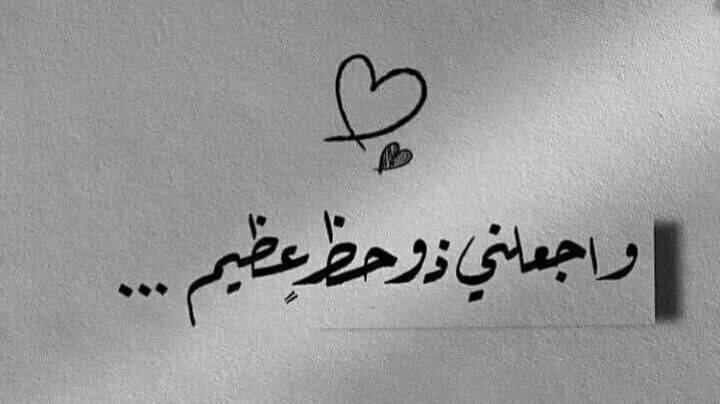 واجعلني ذو حظٍ عظيم ...